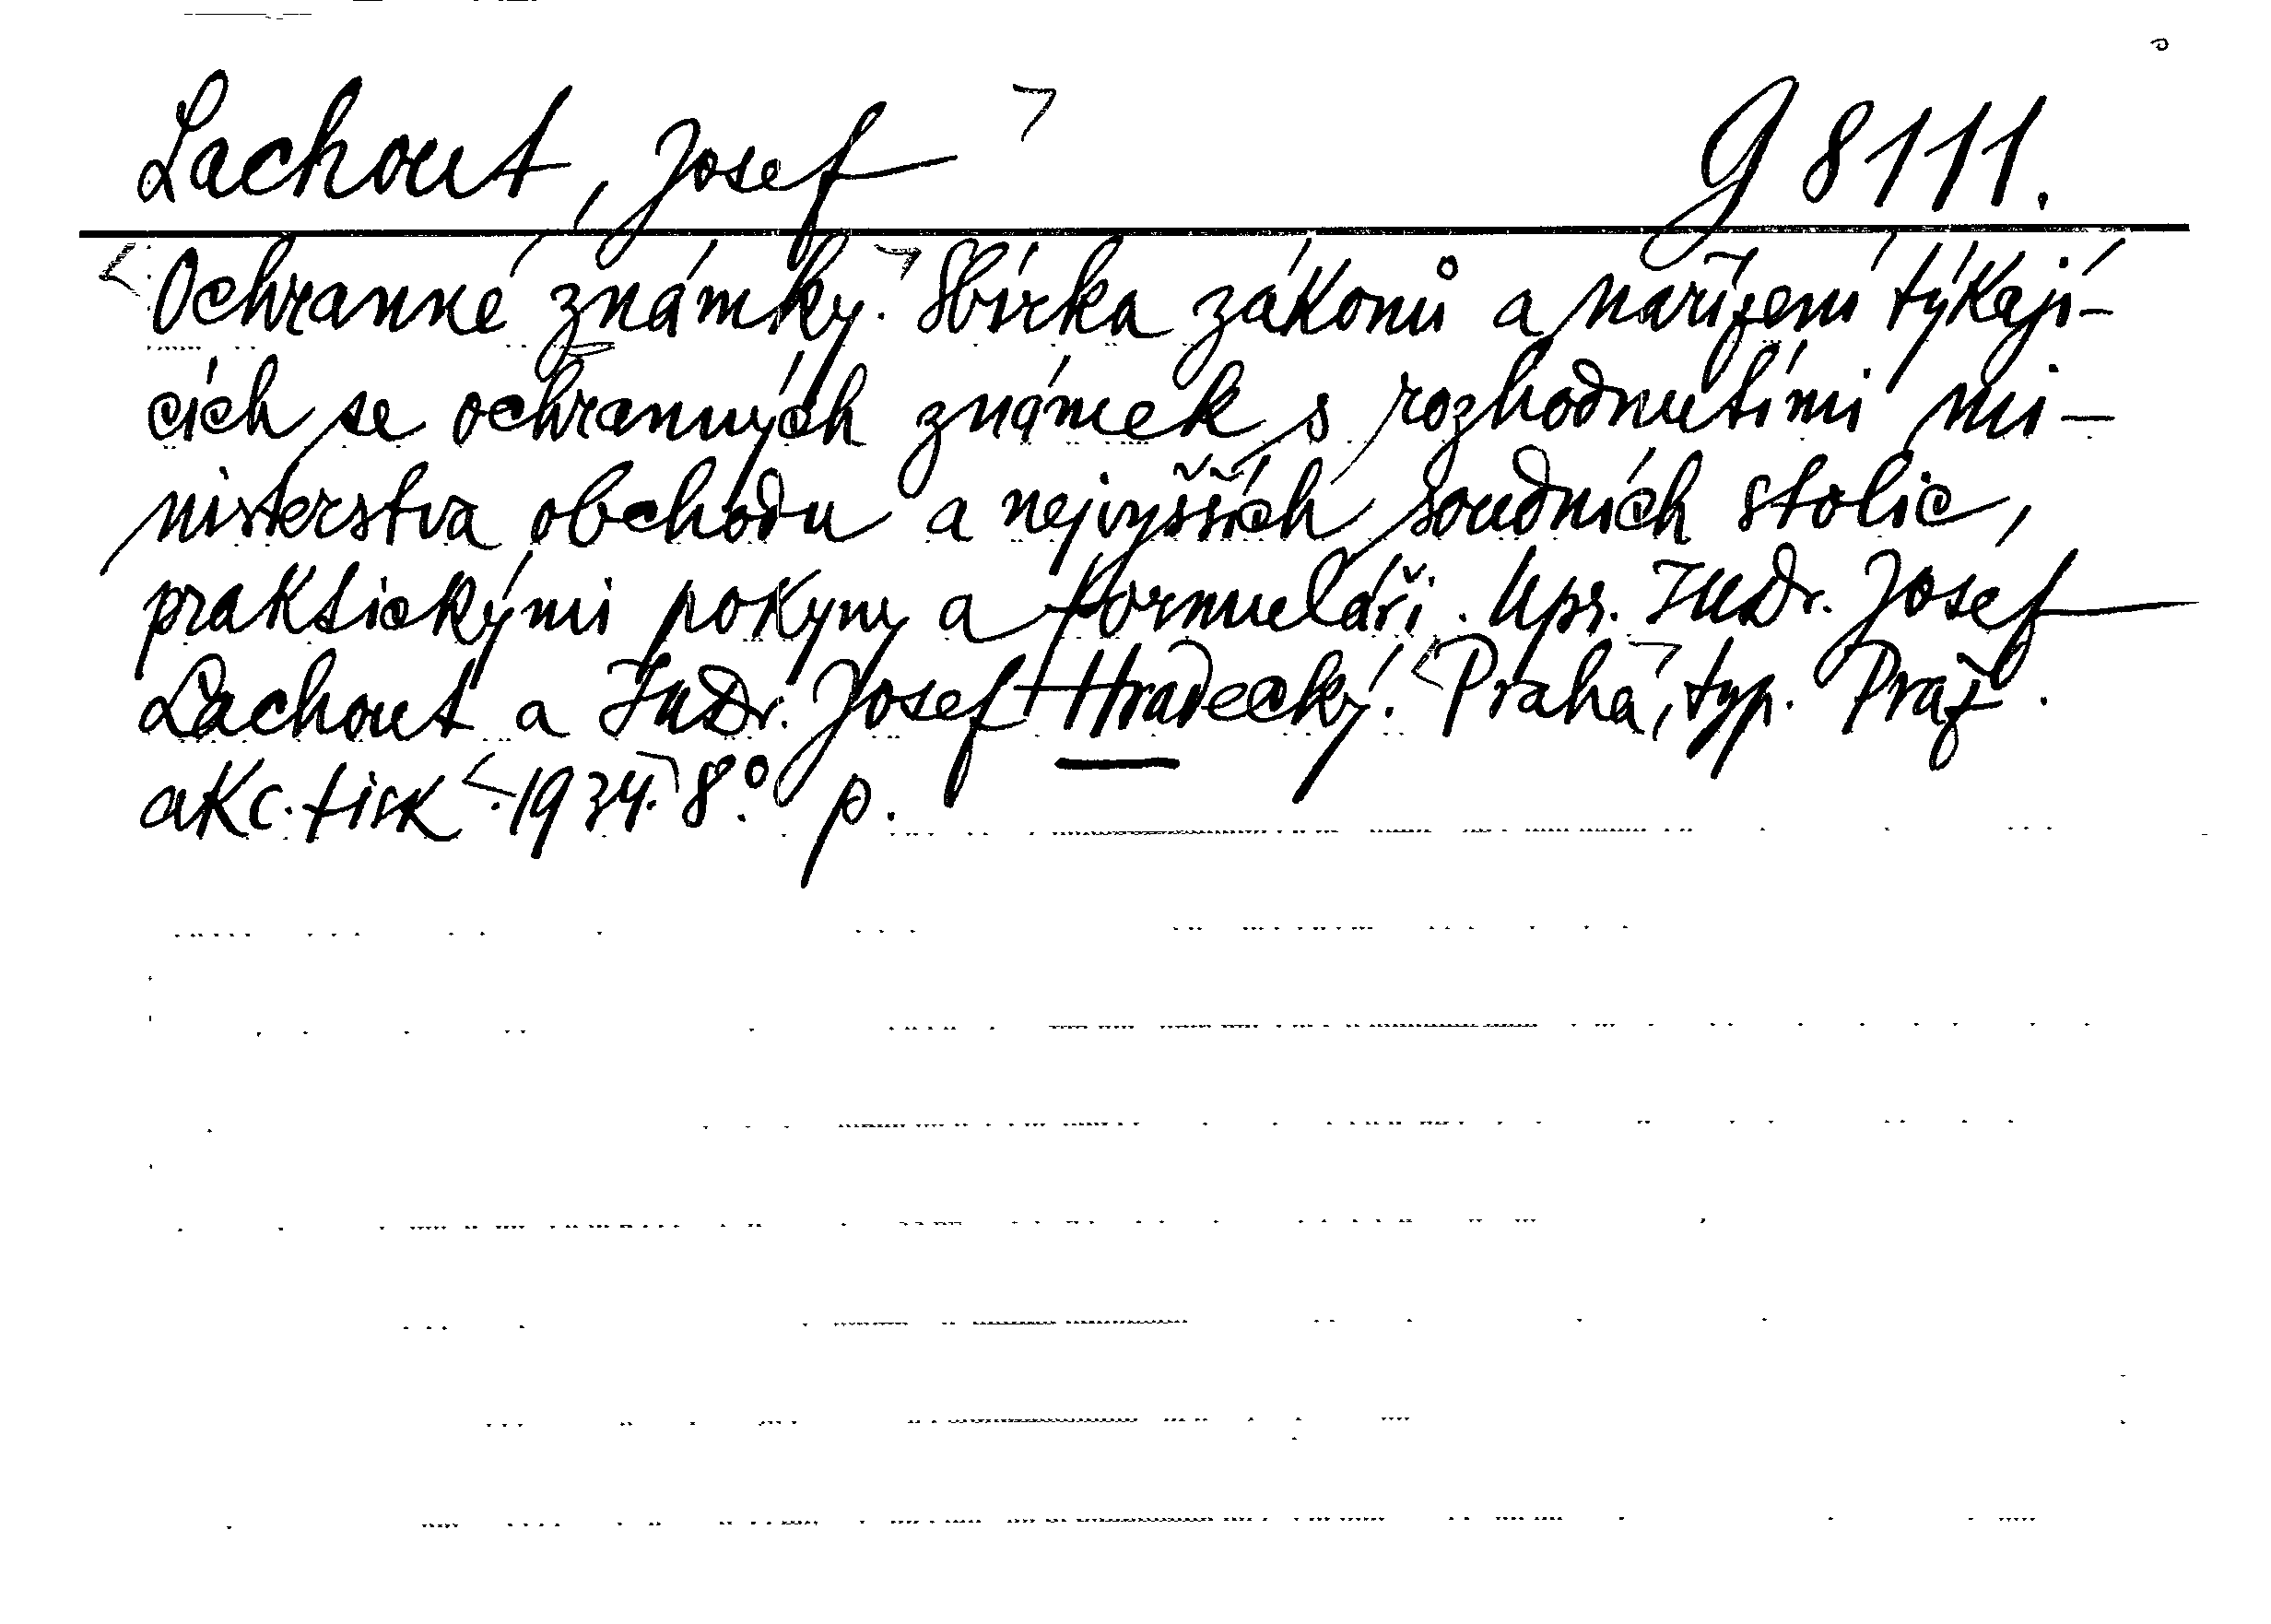 Lachout, Josef G 8111.
Ochranné známky. Sbírka zákonů a nařízení týkají-
cích se ochranných známek s rozhodnutími mi-
nisterstva obchodu a nejvyšších soudních stolic,
praktickými pokyny a formuláři. Upr. JUDr. Josef
Lachout a JUDr. Josef Hradecký. Praha, typ. Praž.
akc. tisk. 1934. 8°. p.